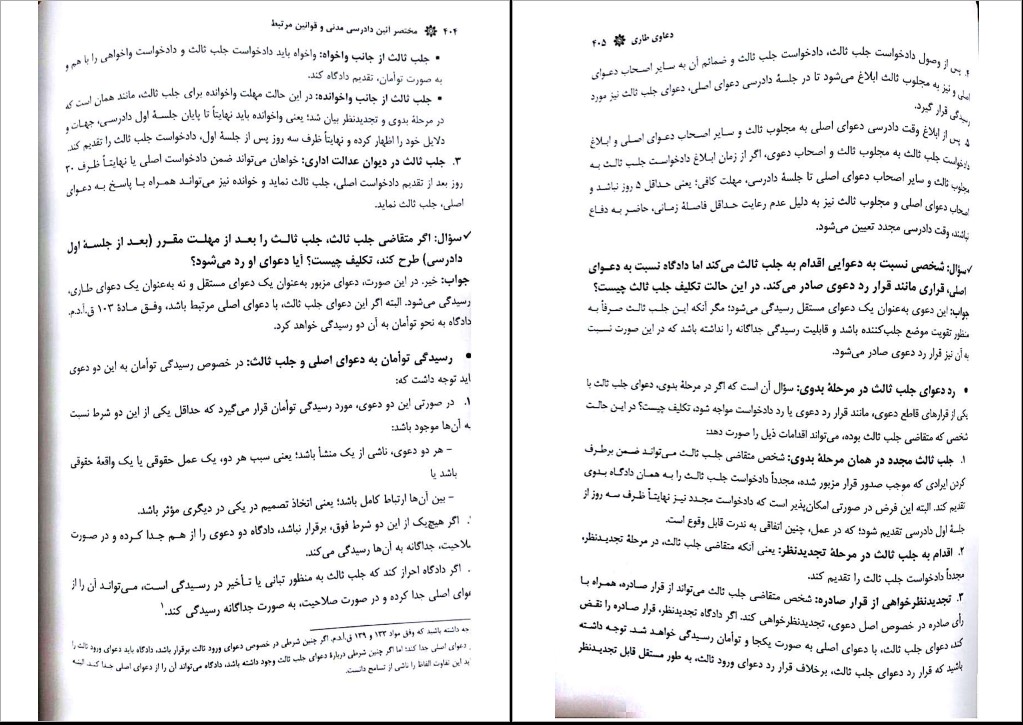 ۴۰۴ مختصر آئین دادرسی مدنی و قوانین مرتبط
▪ جلب ثالث از جانب واخواه: واخواه باید دادخواست جلب ثالث و دادخواست واخواهی را با هم و
به صورت توأمان، تقدیم دادگاه کند.
▪ جلب ثالث از جانب واخوانده: در این حالت مهلت واخوانده برای جلب ثالث، مانند همان است که
در مرحلهٔ بدوی و تجدیدنظر بیان شد؛ یعنی واخوانده باید نهایتاً تا پایان جلسهٔ اول دادرسی، جهات و
دلایل خود را اظهار کرده و نهایتاً ظرف سه روز پس از جلسهٔ اول، دادخواست جلب ثالث را تقدیم کند.
۳. جلب ثالث در دیوان عدالت اداری: خواهان می‌تواند ضمن دادخواست اصلی یا نهایتاً ظرف ۳۰
روز بعد از تقدیم دادخواست اصلی، جلب ثالث نماید و خوانده نیز می‌تواند همراه با پاسخ به دعوای
اصلی، جلب ثالث نماید.
✓سؤال: اگر متقاضی جلب ثالث، جلب ثالث را بعد از مهلت مقرر (بعد از جلسهٔ اول
دادرسی) طرح کند، تکلیف چیست؟ آیا دعوای او رد می‌شود؟
جواب: خیر. در این صورت، دعوای مزبور به‌عنوان یک دعوای مستقل و نه به‌عنوان یک دعوای طاری،
رسیدگی می‌شود. البته اگر این دعوای جلب ثالث، با دعوای اصلی مرتبط باشد، وفق مادهٔ ۱۰۳ ق.آ.د.م.
دادگاه به نحو توأمان به آن دو رسیدگی خواهد کرد.
● رسیدگی توأمان به دعوای اصلی و جلب ثالث: در خصوص رسیدگی توأمان به این دو دعوی
اید توجه داشت که:
۱. در صورتی این دو دعوی، مورد رسیدگی توأمان قرار می‌گیرد که حداقل یکی از این دو شرط نسبت
ه آن‌ها موجود باشد:
– هر دو دعوی، ناشی از یک منشأ باشد؛ یعنی سبب هر دو، یک عمل حقوقی یا یک واقعهٔ حقوقی
باشد یا
– بین آن‌ها ارتباط کامل باشد؛ یعنی اتخاذ تصمیم در یکی در دیگری مؤثر باشد.
. اگر هیچ‌یک از این دو شرط فوق، برقرار نباشد، دادگاه دو دعوی را از هم جدا کرده و در صورت
لاحیت، جداگانه به آن‌ها رسیدگی می‌کند.
. اگر دادگاه احراز کند که جلب ثالث به منظور تبانی یا تأخیر در رسیدگی است، می‌تواند آن را از
عوای اصلی جدا کرده و در صورت صلاحیت، به صورت جداگانه رسیدگی کند.۱
جه داشته باشید که وفق مواد ۱۳۳ و ۱۳۹ ق.آ.د.م. اگر چنین شرطی در خصوص دعوای ورود ثالث برقرار باشد، دادگاه باید دعوای ورود ثالث را
دعوای اصلی جدا کند؛ اما اگر چنین شرطی دربارهٔ دعوای جلب ثالث وجود داشته باشد، دادگاه می‌تواند آن را از دعوای اصلی جدا کند. البته
ید این تفاوت الفاظ را ناشی از تسامح دانست.
دعاوی طاری ۴۰۵
پس از وصول دادخواست جلب ثالث، دادخواست جلب ثالث و ضمائم آن به سایر اصحاب دعوای
اصلی و نیز به مجلوب ثالث ابلاغ می‌شود تا در جلسهٔ دادرسی دعوای اصلی، دعوای جلب ثالث نیز مورد
رسیدگی قرار گیرد.
۵. پس از ابلاغ وقت دادرسی دعوای اصلی به مجلوب ثالث و سایر اصحاب دعوای اصلی و ابلاغ
دادخواست جلب ثالث به مجلوب ثالث و اصحاب دعوی، اگر از زمان ابلاغ دادخواست جلب ثالث به
مجلوب ثالث و سایر اصحاب دعوای اصلی تا جلسهٔ دادرسی، مهلت کافی؛ یعنی حداقل ۵ روز نباشد و
اصحاب دعوای اصلی و مجلوب ثالث نیز به دلیل عدم رعایت حداقل فاصلهٔ زمانی، حاضر به دفاع
نباشند، وقت دادرسی مجدد تعیین می‌شود.
✓سؤال: شخصی نسبت به دعوایی اقدام به جلب ثالث می‌کند اما دادگاه نسبت به دعوای
اصلی، قراری مانند قرار رد دعوی صادر می‌کند. در این حالت تکلیف جلب ثالث چیست؟
جواب: این دعوی به‌عنوان یک دعوای مستقل رسیدگی می‌شود؛ مگر آنکه این جلب ثالث صرفاً به
منظور تقویت موضع جلب‌کننده باشد و قابلیت رسیدگی جداگانه را نداشته باشد که در این صورت نسبت
به آن نیز قرار رد دعوی صادر می‌شود.
● رد دعوای جلب ثالث در مرحلهٔ بدوی: سؤال آن است که اگر در مرحلهٔ بدوی، دعوای جلب ثالث با
یکی از قرارهای قاطع دعوی، مانند قرار رد دعوی یا رد دادخواست مواجه شود، تکلیف چیست؟ در این حالت
شخصی که متقاضی جلب ثالث بوده، می‌تواند اقدامات ذیل را صورت دهد:
۱. جلب ثالث مجدد در همان مرحلهٔ بدوی: شخص متقاضی جلب ثالث می‌تواند ضمن برطرف
کردن ایرادی که موجب صدور قرار مزبور شده، مجدداً دادخواست جلب ثالث را به همان دادگاه بدوی
تقدیم کند. البته این فرض در صورتی امکان‌پذیر است که دادخواست مجدد نیز نهایتاً ظرف سه روز از
جلسهٔ اول دادرسی تقدیم شود؛ که در عمل، چنین اتفاقی به ندرت قابل وقوع است.
۲. اقدام به جلب ثالث در مرحلهٔ تجدیدنظر: یعنی آنکه متقاضی جلب ثالث، در مرحلهٔ تجدیدنظر،
مجدداً دادخواست جلب ثالث را تقدیم کند.
۳. تجدیدنظرخواهی از قرار صادره: شخص متقاضی جلب ثالث می‌تواند از قرار صادره، همراه با
رأی صادره در خصوص اصل دعوی، تجدیدنظرخواهی کند. اگر دادگاه تجدیدنظر، قرار صادره را نقض
کند، دعوای جلب ثالث، با دعوای اصلی به صورت یکجا و توأمان رسیدگی خواهد شد. توجه داشته
باشید که قرار رد دعوای جلب ثالث، برخلاف قرار رد دعوای ورود ثالث، به طور مستقل قابل تجدیدنظر